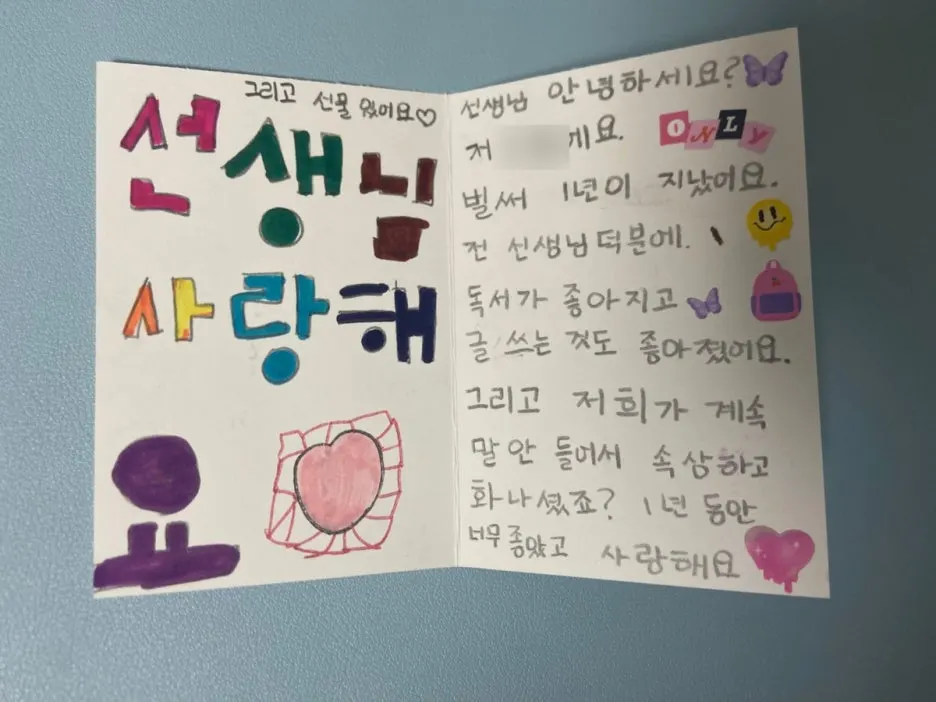 그리고 선물 있어요♡
선생님
사랑해
요
선생님 안녕하세요?
저 게요.
ONLY
벌써 1년이 지났어요.
전 선생님 덕분에.
독서가 좋아지고
글 쓰는 것도 좋아졌어요.
그리고 저희가 계속
말 안 들어서 속상하고
화나셨죠? 1년 동안
너무 좋았고 사랑해요